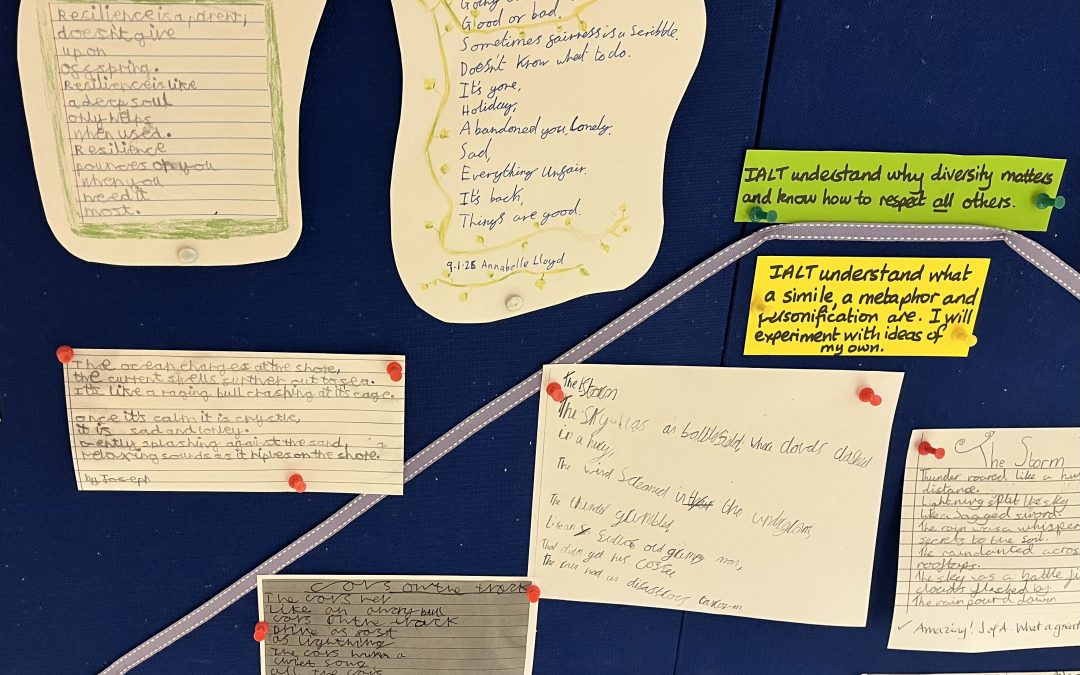 Resilience is a parent,
doesn't give
up on
offspring.
Resilience is like
a deep soul
only helps
when used.
Resilience
pounces on you
when you
need it
most.
Going
Good or bad.
Sometimes fairness is a scribble.
Doesn't know what to do.
It's gone,
Holiday,
Abandoned you, lonely.
Sad,
Everything Unfair.
It's back,
Things are good.
9.1.25 Annabelle Lloyd
IALT understand why diversity matters
and know how to respect all others.
IALT understand what
a simile, a metaphor and
personification are. I will
experiment with ideas of
my own.
The ocean charges at the shore,
the current spells further out to sea.
Its like a raging bull crashing at its cage.
once it's calm it is crystle,
it is sad and lonley.
Gently splashing against the sand,
relaxing sounds as it riples on the shore.
by Joseph
The Storm
The sky was a battlefield, where clouds clashed
in a
The wind screamed the
The thunder grumbled,
Like an old grumpy man,
That didn't get his coffee
The rain had a disastrous
The Storm
Thunder roared like a
distance.
Lightning split the sky
like a Jagged sword.
The rain was a whisper
secrets to the soil.
The rain danted across
rooftops.
The sky was a battle
clouds flashed by
The rain pourd down
✓ Amazing! J.A. What a great
Cars on the track
The cars
Like an angry bull
cars on the track
Drive as fast
as lightning
The cars hum a
quiet song
all the cars